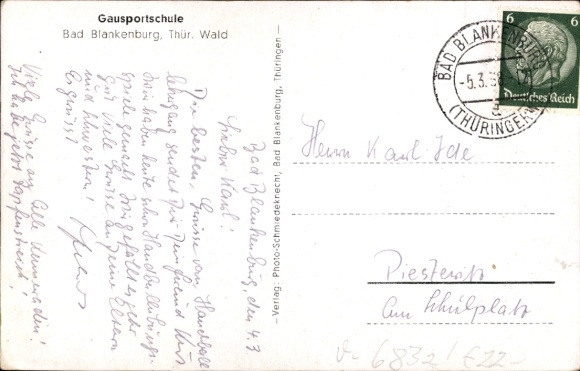 Gausportschule
Bad Blankenburg, Thür. Wald
Bad Blankenburg, den 4.3
Lieber Karl!
Die besten Grüsse vom Handball-
lehrgang sendet Dir Dein Freund Kurt.
Wir haben heute schon Handballübungs-
spiele gemacht. Mir gefällt es sehr
gut. Viele Grüsse an Deine Eltern
und Schwestern!
Es grüsst
Viele Grüsse an alle Kameraden!
Ich habe jetzt Zapfenstreich!
Verlag: Photo-Schmiedeknecht, Bad Blankenburg, Thüringen
BAD BLANKENBURG
-5.3.38
(THÜRINGERW
6 6
Deutsches Reich
Herrn Karl Ide
Piesteritz
Am Schulplatz
6832 £22-